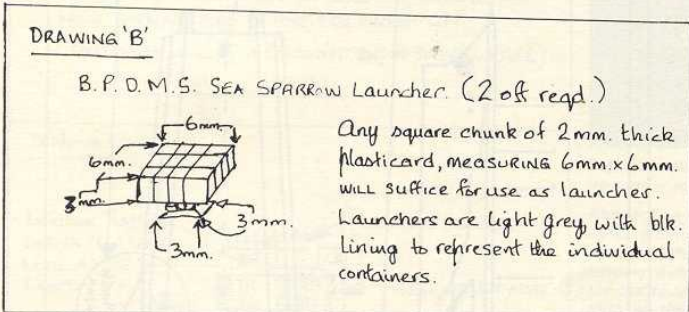 DRAWING 'B'
B.P.D.M.S. SEA SPARROW Launcher. (2 off reqd.)
6mm.
6mm.
3mm.
3mm.
3mm.
Any square chunk of 2mm. thick
plasticard, MEASURING 6mm. x 6mm.
WILL suffice for use as launcher.
Launchers are light grey with blk.
lining to represent the individual
containers.